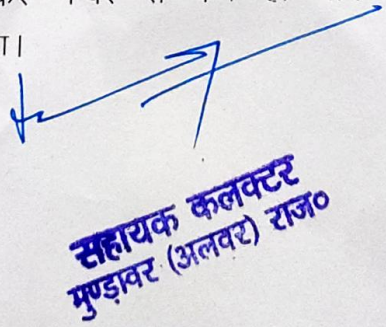 ा।
सहायक कलक्टर
मुण्डावर (अलवर) राज०